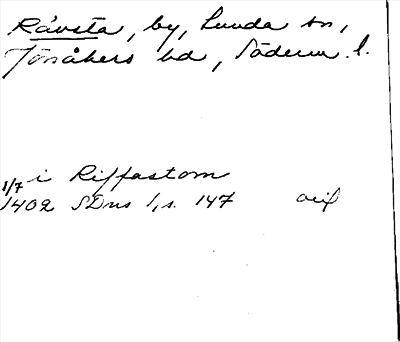 Råvsta, by, Lunda sn,
Jönåkers hd, Söderm. l.
i Riffastom
1/7
1402 SDns 1, s. 147 avif